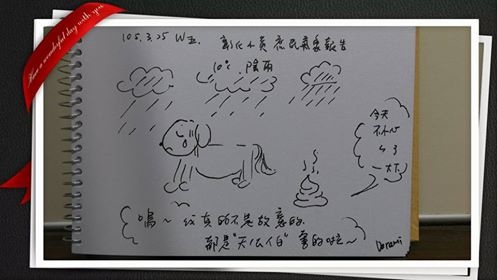 Have a wonderful day with you
105.3.25 W五. 彰化小黃 氣象報告
10℃, 陰雨
今天
不小心
ㄣ了
一大
嗚～ 我真的不是故意的.
都是"天公伯"害的啦～
Dorami